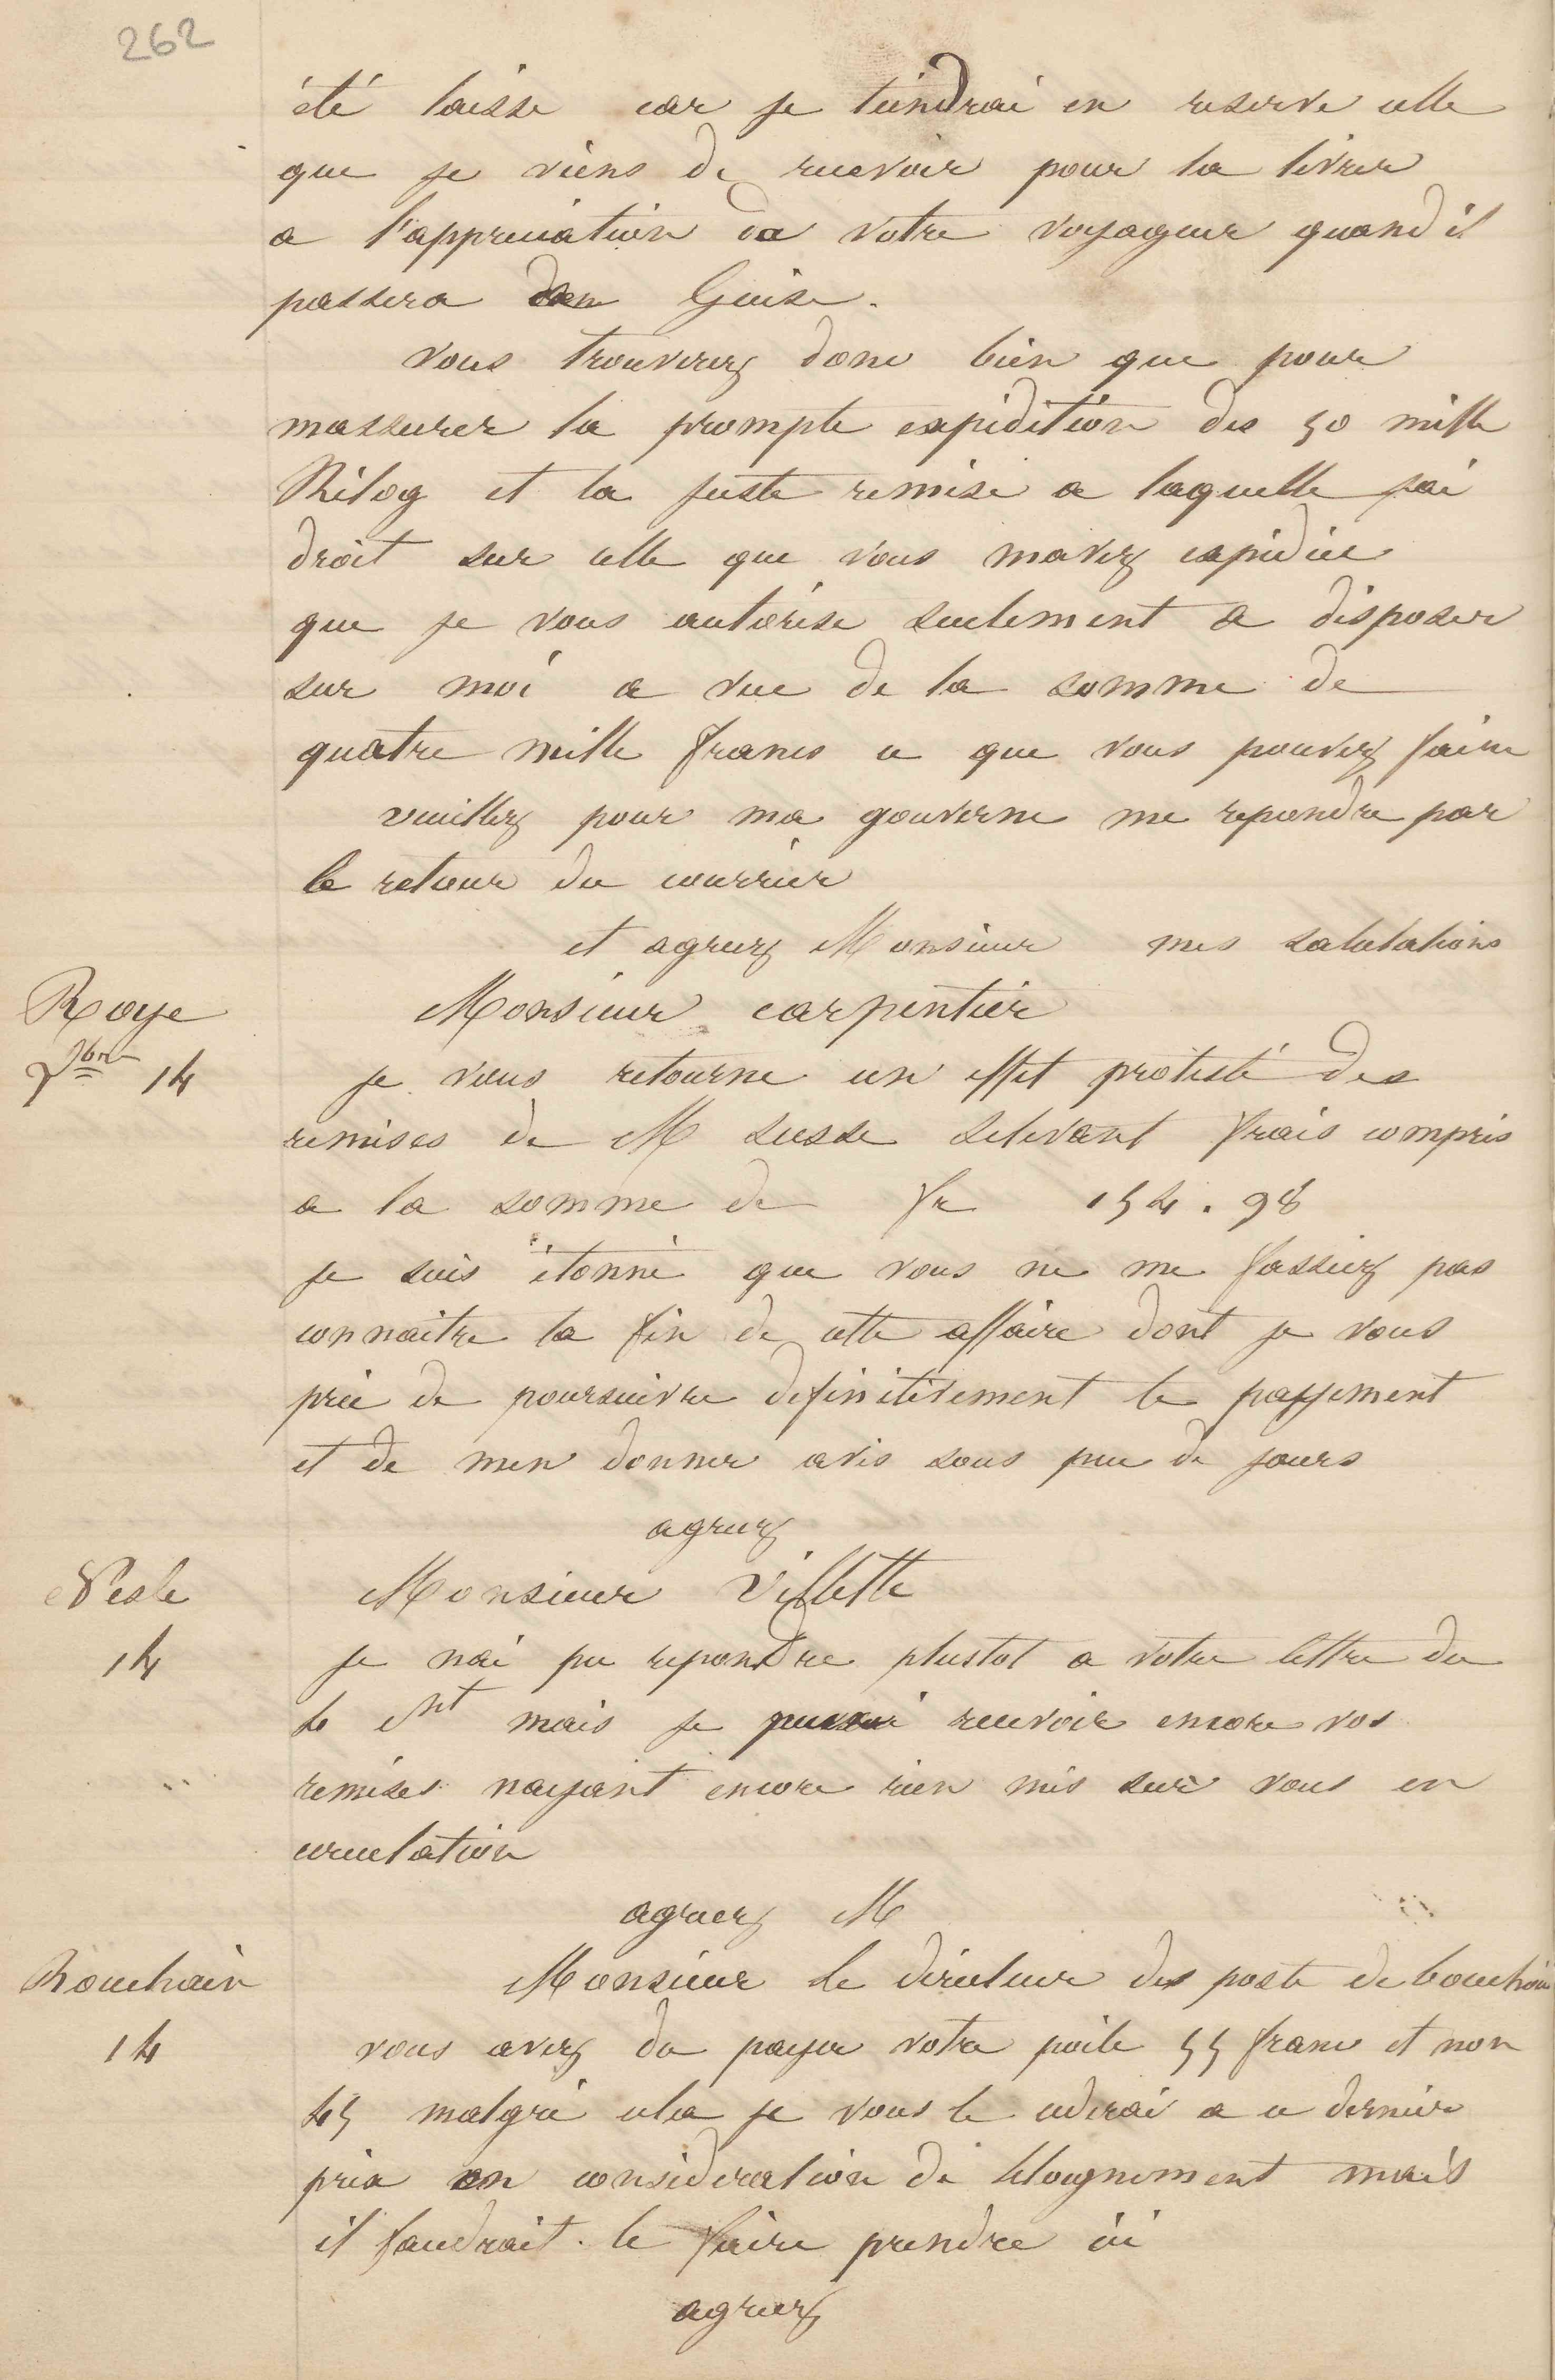 262
été laisse car je tiendrai en reserve celle
que je viens de recevoir pour la livrer
a l'appreciation da votre voyageur quand il
passera en Guise.
vous trouverez donc bien que pour
massurer la prompte expedition des 50 mille
Kilog et la juste remise a laquelle jai
droit sur celle que vous mavez expediee
que je vous autorise seulement a disposer
sur moi a vue de la somme de
quatre mille francs ce que vous pouvez faire
veuillez pour ma gouverne me repondre par
le retour du courrier
et agreez Monsieur mes salutations
Roye
Monsieur carpentier
xbre 14
je vous retourne un effet protesté des
remises de M susse selevant frais compris
a la somme de fr 154.98
je suis étonné que vous ne me fassiez pas
connaitre la fin de cette affaire dont je vous
prie de poursuivre definitivement le payement
et de men donner avis sous peu de jours
agreez
Nesle
Monsieur Villette
14
je nai pu repondre plustot a votre lettre du
4 ct mais je recevoir encore vos
remises nayant encore rien mis sur vous en
circulation
agreez M
Bouchain
Monsieur le directeur des poste de bouchain
14
vous avez du payer votre poile 55 franc et non
45 malgré cela je vous le cederai a ce dernier
prix en consideration de lelognement mais
il faudrait le faire prendre ici
agreez